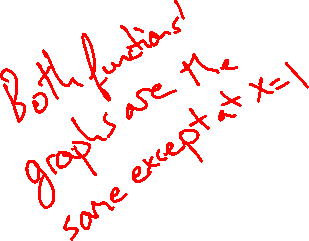 Both functions'
graphs are the
same except at x=1